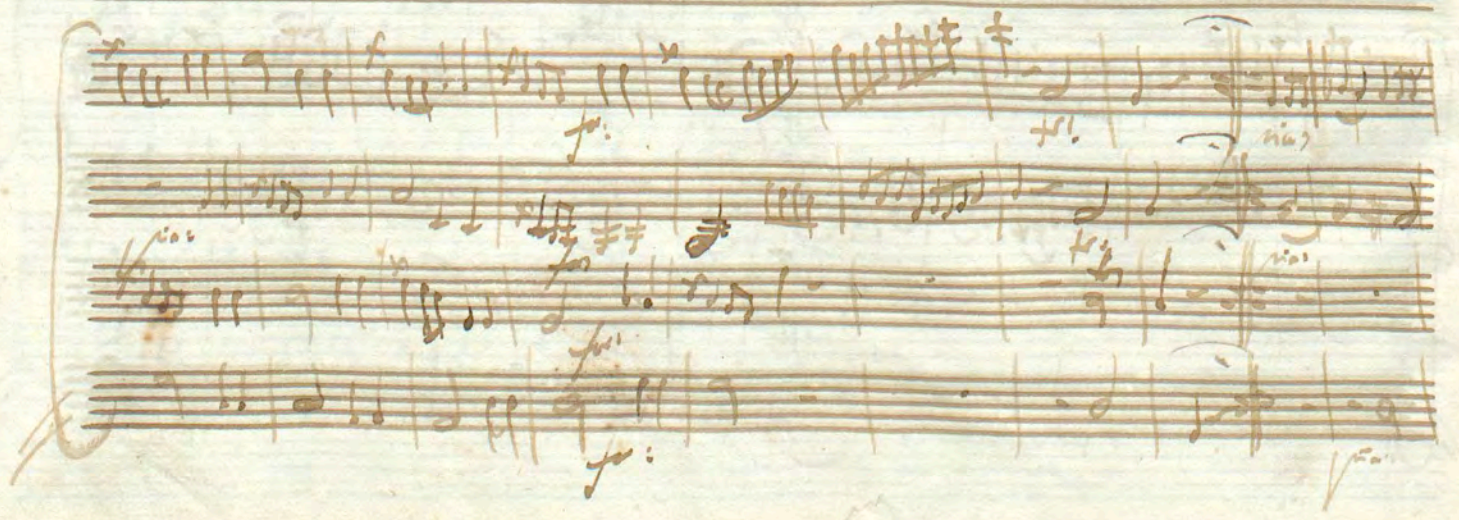 for:
for:
pia:
pia:
for:
pia:
for:
for:
pia: